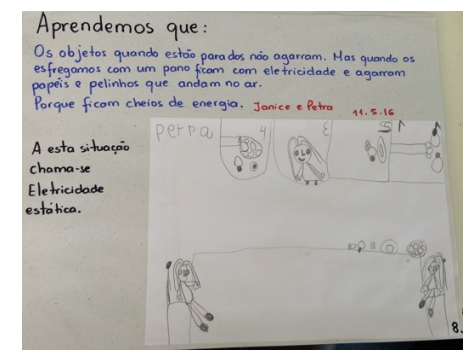 Aprendemos que:
Os objetos quando estão parados não agarram. Mas quando os
esfregamos com um pano ficam com eletricidade e agarram
papéis e pelinhos que andam no ar.
Porque ficam cheios de energia. Janice e Petra 11.5.16
A esta situação
chama-se
Eletricidade
estática.
petra
8.